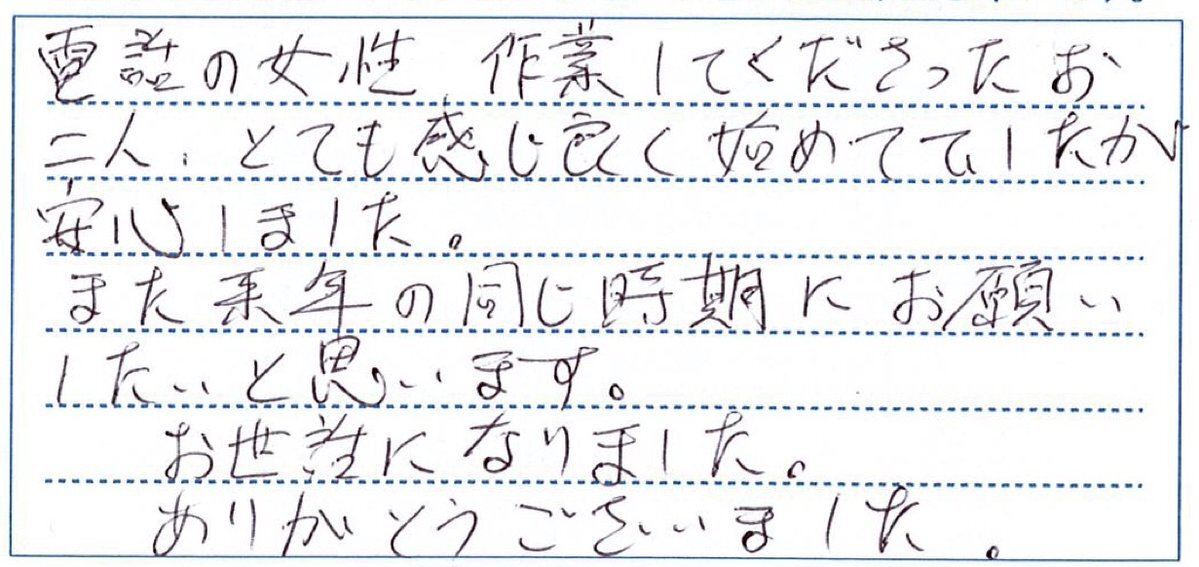 電話の女性 作業してくださったお
二人、とても感じ良く始めてでしたが
安心しました。
また来年の同じ時期にお願い
したいと思います。
お世話になりました。
ありがとうございました。